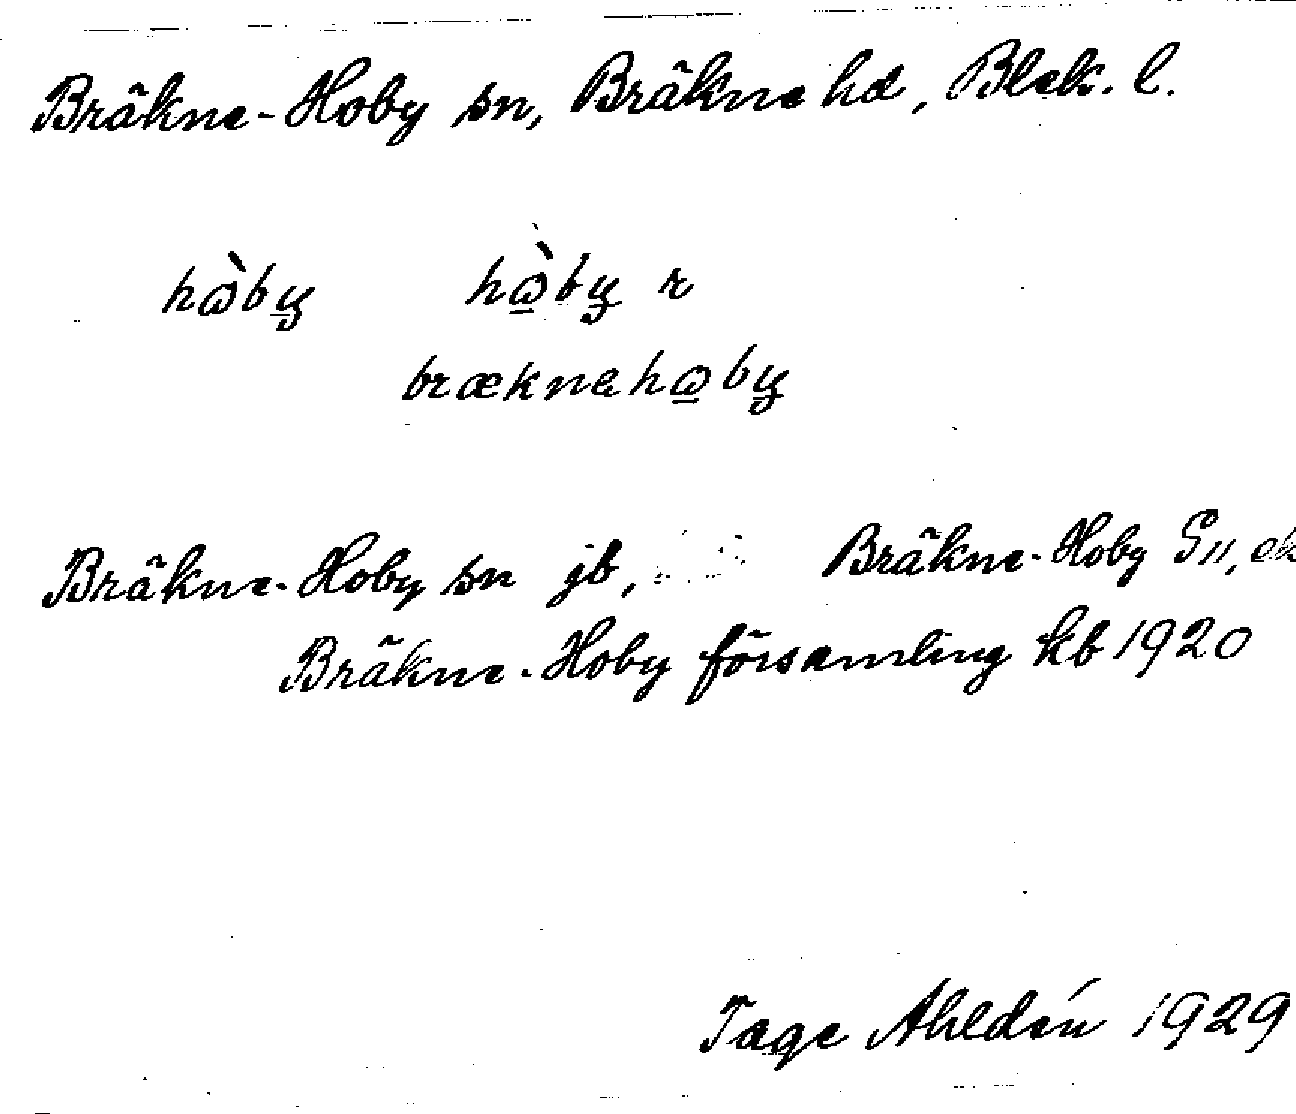 Bräkne-Hoby sn, Bräkne hd, Blek. l.
hɷ̀by hɷ̀by r
bræknahɷby
Bräkne-Hoby sn jb, Bräkne-Hoby S11, ek
Bräkne-Hoby församling kb 1920
Tage Ahldén 1929